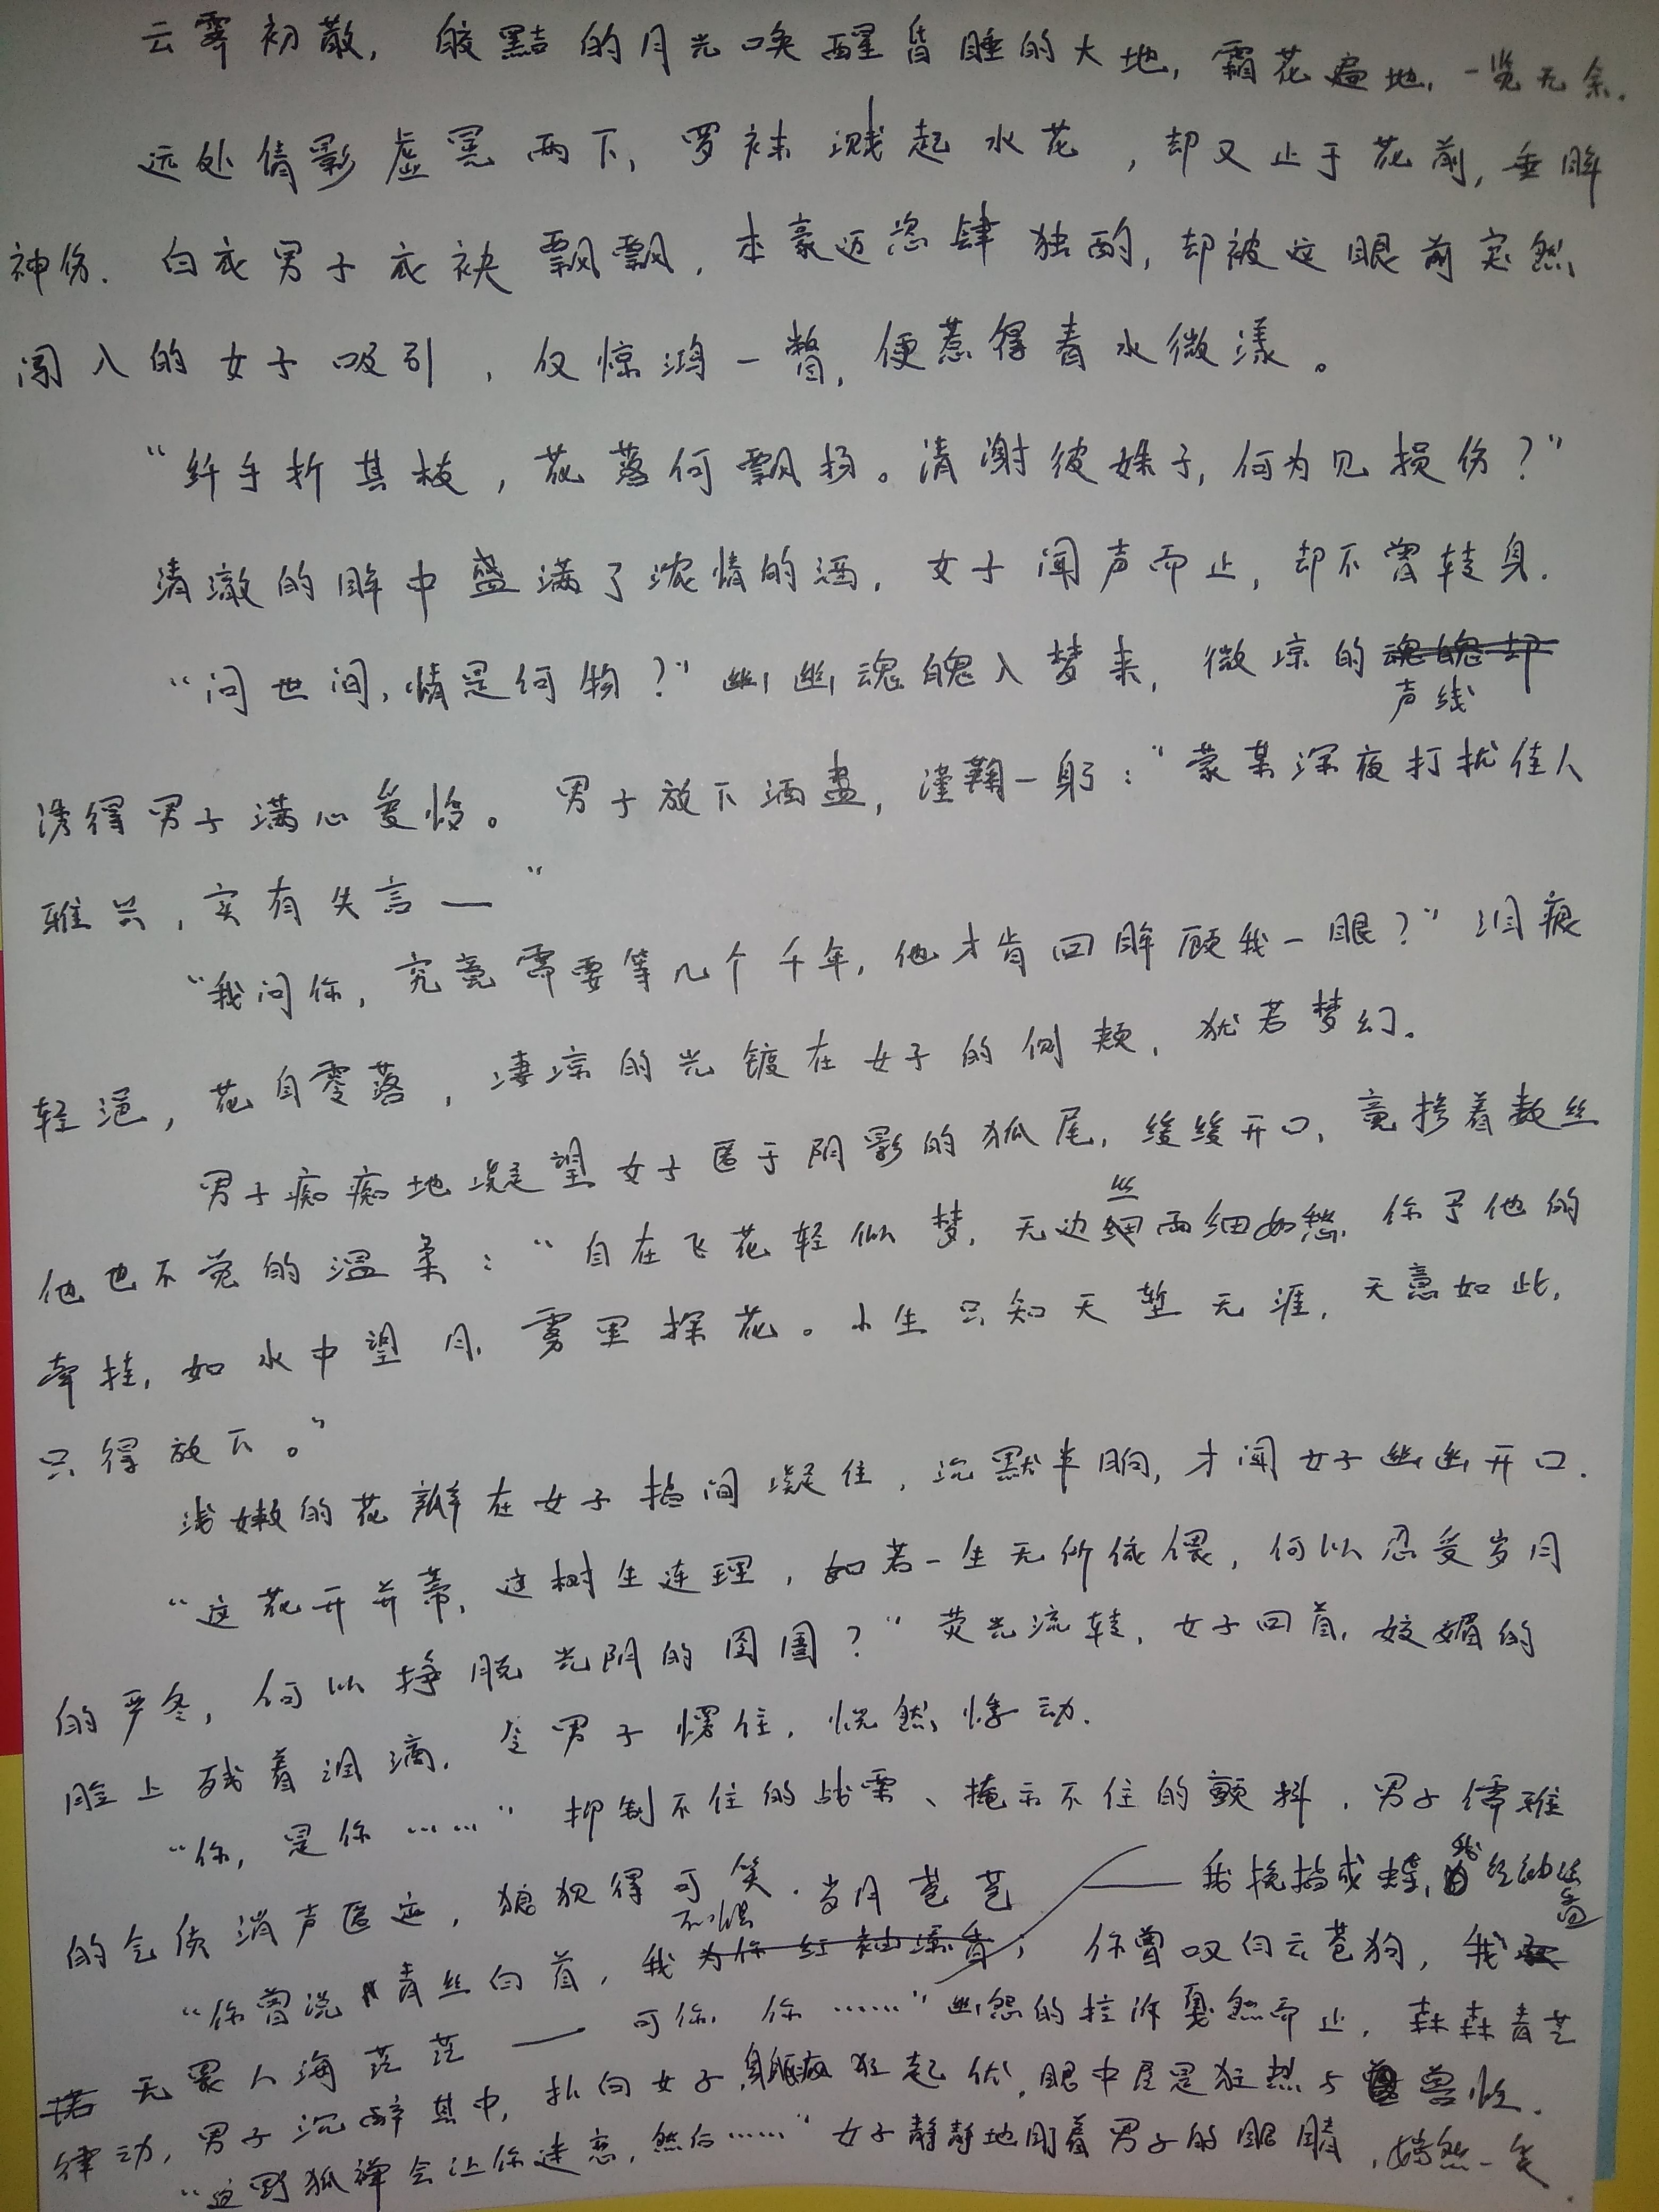 云雾初散,皎黠的月光唤醒昏睡的大地,霜花遍地,一览无余.
远处倩影虚晃两下,罗袜溅起水花,却又止于花前,垂眸
神伤.白衣男子衣袂飘飘,本豪迈恣肆独酌,却被这眼前突然
闯入的女子吸引,仅惊鸿一瞥,便惹得春水微漾。
“纤手折其枝,花落何飘扬。清谢彼姝子,何为见损伤?”
清澈的眸中盛满了浓情的酒,女子闻声而止,却不曾转身.
“问世间,情是何物?”幽幽魂魄入梦来,微凉的声线
诱得男子满心爱怜。男子放下酒盏,谨鞠一躬:“蒙某深夜打扰佳人
雅兴,实有失言—”
“我问你,究竟需要等几个千年,他才肯回眸顾我一眼?”泪痕
轻浥,花自零落,凄凉的光镀在女子的侧颊,犹若梦幻.
男子痴痴地凝望女子匿于阴影的狐尾,缓缓开口,竟掺着数丝
他也不觉的温柔:“自在飞花轻似梦,无边丝雨细如愁.你予他的
牵挂,如水中望月,雾里探花。小生只知天堑无涯,天意如此,
只得放下。”
浅嫩的花瓣在女子指间凝住,沉默半晌,才闻女子幽幽开口.
“这花开并蒂,这树生连理,如若一生无所依偎,何以忍受岁月
的严冬,何以挣脱光阴的囹圄?”荧光流转,女子回首,姣媚的
脸上残着泪滴,令男子愣住,恍然悸动.
“你,是你……”抑制不住的战栗、掩示不住的颤抖,男子儒雅
的气质消声匿迹,狼狈得可笑.
“你曾说青丝白首,我不惧岁月苍苍——我挽指成蝶,我红袖添香;你曾叹白云苍狗,我
无畏人海茫茫——可你,你……”幽怨的控诉戛然而止,森森青芒
律动,男子沉醉其中,扑向女子,身躯疯狂起伏,眼中尽是狂热与兽性.
“这野狐禅会让你迷恋,然后……”女子静静地盯着男子的眼睛,嫣然一笑.